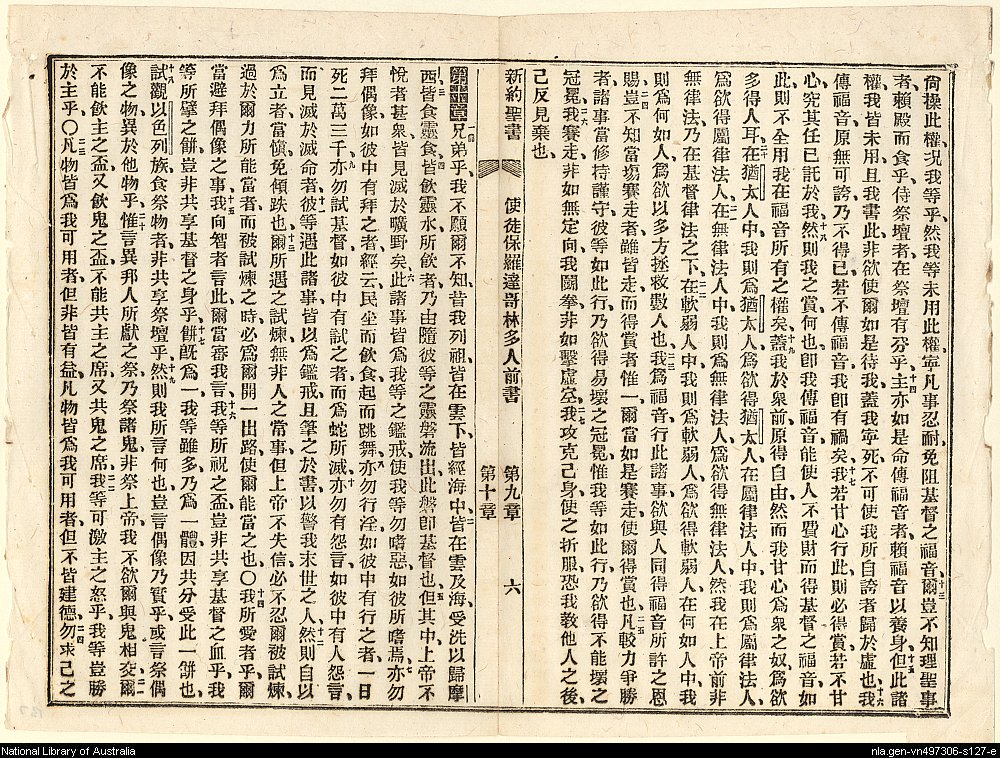 尙操此權、况我等乎、然我等未用此權、寧凡事忍耐、免阻基督之福音、十三爾豈不知理聖事
者、賴殿而食乎、侍祭壇者、在祭壇有分乎、十四主亦如是命傳福音者、賴福音以養身、十五但此諸
權、我皆未用、且我書此、非欲使爾如是待我、蓋我寧死、不可使我所自誇者歸於虛也、十六我
傳福音、原無可誇、乃不得已、若不傳福音、我卽有禍矣、十七我若甘心行此、則必得賞、若不甘
心、究其任已託於我、十八然則我之賞何也、卽我傳福音、能使人不費財而得基督之福音、如
此則不全用我在福音所有之權矣、十九蓋我於衆前、原得自由、然而我甘心爲衆之奴、爲欲
多得人耳、二十在猶太人中、我則爲猶太人、爲欲得猶太人、在屬律法人中、我則爲屬律法人、
爲欲得屬律法人、二一在無律法人中、我則爲無律法人、爲欲得無律法人、然我在上帝前、非
無律法、乃在基督律法之下、二二在軟弱人中、我則爲軟弱人、爲欲得軟弱人、在何如人中、我
則爲何如人、爲欲以多方拯救數人也、二三我爲福音行此諸事、欲與人同得福音所許之恩
賜、二四豈不知當塲賽走者、雖皆走、而得賞者惟一、爾當如是賽走、使爾得賞也、二五凡較力爭勝
者、諸事當修持謹守、彼等如此行、乃欲得易壞之冠冕、惟我等如此行、乃欲得不能壞之
冠冕、二六我賽走、非如無定向、我鬪拳、非如擊虛空、二七我攻克己身、使之折服、恐我教他人之後、
己反見棄也、
新約聖書 使徒保羅達哥林多人前書 第九章 六
第十章
第十章一兄弟乎、我不願爾不知、昔我列祖皆在雲下、皆經海中、二皆在雲及海、受洗以歸摩
西、三皆食靈食、四皆飲靈水、所飲者、乃由隨彼等之靈磐流出、此磐卽基督也、五但其中上帝不
悅者甚衆、皆見滅於曠野矣、六此諸事皆爲我等之鑑戒、使我等勿嗜惡、如彼所嗜焉、七亦勿
拜偶像、如彼中有拜之者、經云、民坐而飲食、起而跳舞、八亦勿行淫、如彼中有行之者、一日
死二萬三千、九亦勿試基督、如彼中有試之者、而爲蛇所滅、十亦勿有怨言、如彼中有人怨言、
而見滅於滅命者、十一彼等遇此諸事、皆以爲鑑戒、且筆之於書、以警我末世之人、十二然則自以
爲立者、當愼免傾跌也、十三爾所遇之試煉、無非人之常事、但上帝不失信、必不忍爾被試煉、
過於爾力所能當者、而被試煉之時、必爲爾開一出路、使爾能當之也、〇十四我所愛者乎、爾
當避拜偶像之事、十五我向智者言此、爾當審我言、十六我等所祝之盃、豈非共享基督之血乎、我
等所擘之餅、豈非共享基督之身乎、十七餅旣爲一、我等雖多、乃爲一體、因共分受此一餅也、
十八試觀以色列族、食祭物者、非共享祭壇乎、十九然則我所言何也、豈言偶像乃實乎、或言祭偶
像之物、異於他物乎、二十惟言異邦人所獻之祭、乃祭諸鬼、非祭上帝、我不欲爾與鬼相交、二一爾
不能飲主之盃、又飲鬼之盃、不能共主之席、又共鬼之席、二二我等可激主之怒乎、我等豈勝
於主乎、〇二三凡物皆爲我可用者、但非皆有益、凡物皆爲我可用者、但不皆建德、二四勿求己之
National Library of Australia
nla.gen-vn497306-s127-e